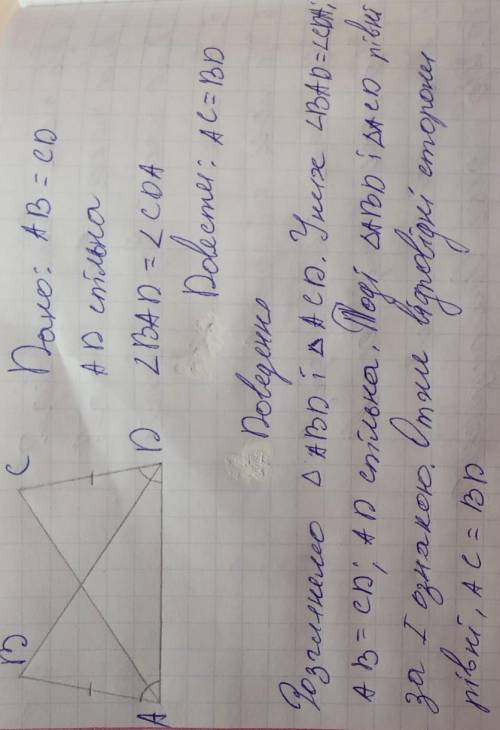 B C
A D
Дано: AB = CD
AD спільна
∠BAD = ∠CDA
Довести: AC = BD
Доведення
Розглянемо △ABD і △ACD. У них ∠BAD = ∠CDA;
AB = CD; AD спільна. Тоді △ABD і △ACD рівні
за I ознакою. Отже відповідні сторони
рівні, AC = BD